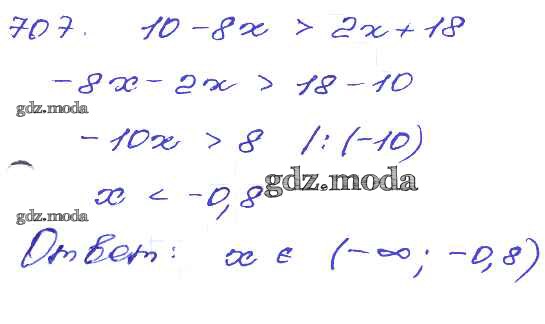 707. 10 - 8x > 2x + 18
-8x - 2x > 18 - 10
gdz.moda
-10x > 8 /:(-10)
gdz.moda
x < -0,8
gdz.moda
Ответ: x ∈ (-∞; -0,8)